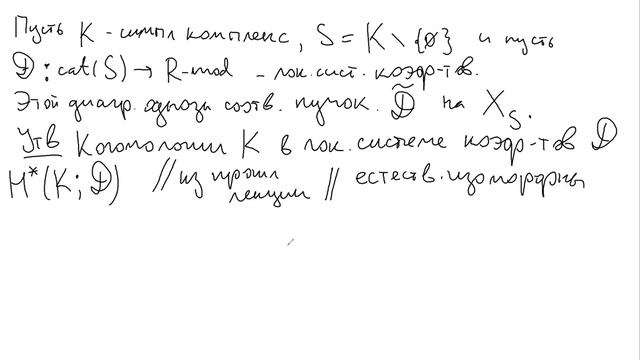 Пусть K - симпл комплекс, S = K \ {∅} и пусть
D : cat(S) → R-mod - лок. сист. коэф-тов.
Этой диагр. однозн соотв. пучок. D̃ на X_S.
Утв Когомологии K в лок. системе коэф-тов D
H*(K; D) // из прошл лекции // естеств. изоморфны